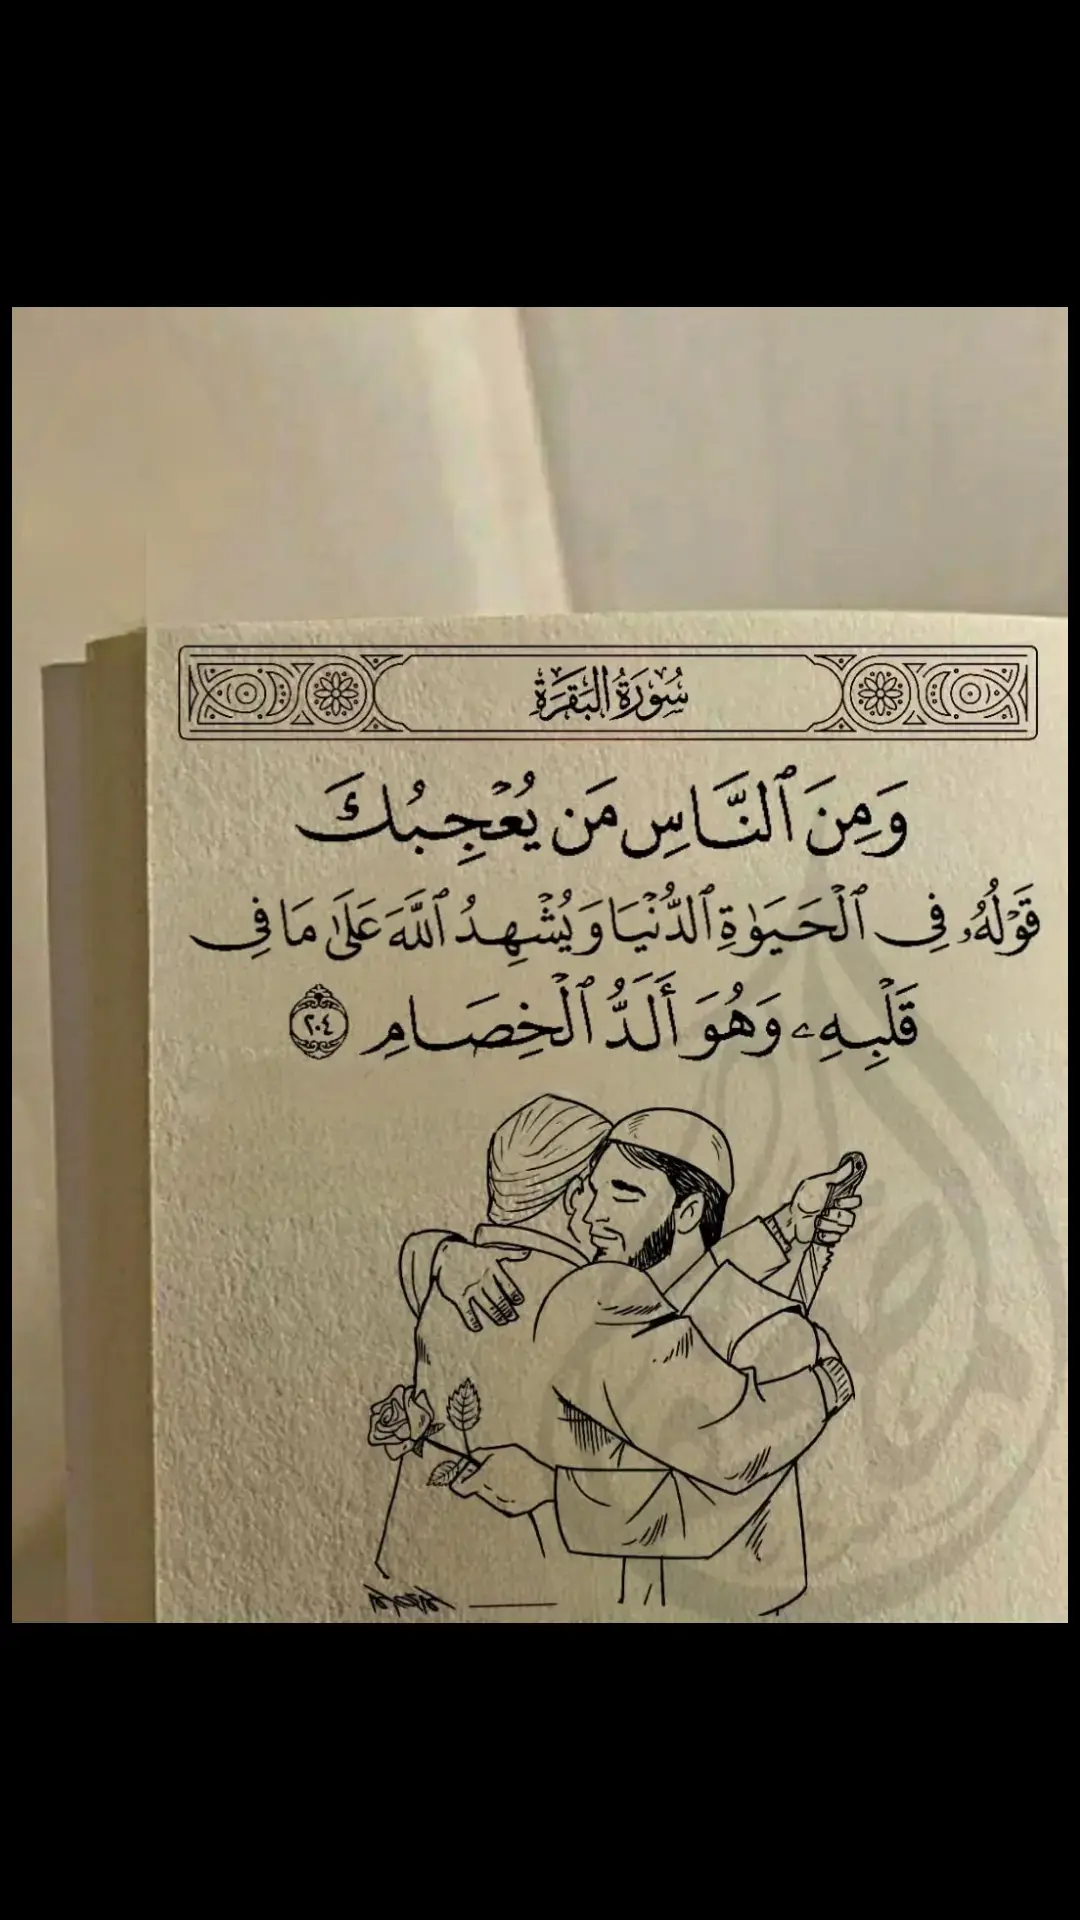 سُورَةُ البَقَرَةِ
وَمِنَ ٱلنَّاسِ مَن يُعْجِبُكَ
قَوْلُهُۥ فِى ٱلْحَيَوٰةِ ٱلدُّنْيَا وَيُشْهِدُ ٱللَّهَ عَلَىٰ مَا فِى
قَلْبِهِۦ وَهُوَ أَلَدُّ ٱلْخِصَامِ ٢٠٤